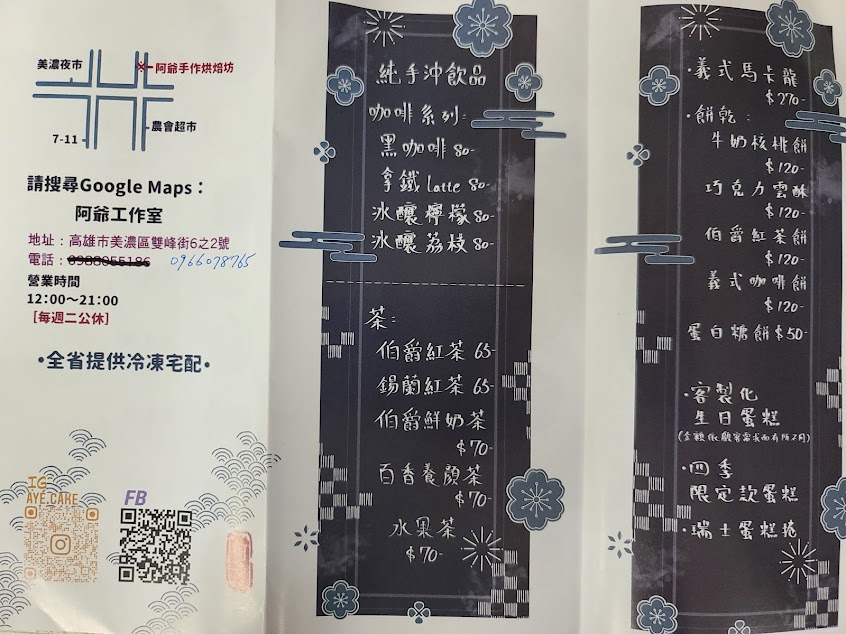 美濃夜市
×阿爺手作烘焙坊
7-11
農會超市
請搜尋Google Maps：
阿爺工作室
地址：高雄市美濃區雙峰街6之2號
電話：0988055186 0966078765
營業時間
12:00～21:00
[每週二公休]
•全省提供冷凍宅配•
IG
AYE.CAKE
FB
純手沖飲品
咖啡系列:
黑咖啡 80-
拿鐵 latte 80-
冰釀檸檬 80-
冰釀荔枝 80-
茶:
伯爵紅茶 65-
錫蘭紅茶 65-
伯爵鮮奶茶
$70-
百香養顏茶
$70-
水果茶
$70-
·義式馬卡龍
$270-
·餅乾:
牛奶核桃餅
$120-
巧克力雲酥
$120-
伯爵紅茶餅
$120-
義式咖啡餅
$120-
蛋白糖餅 $50-
·客製化
生日蛋糕
(金額依顧客需求而有所不同)
·四季
限定款蛋糕
·瑞士蛋糕捲